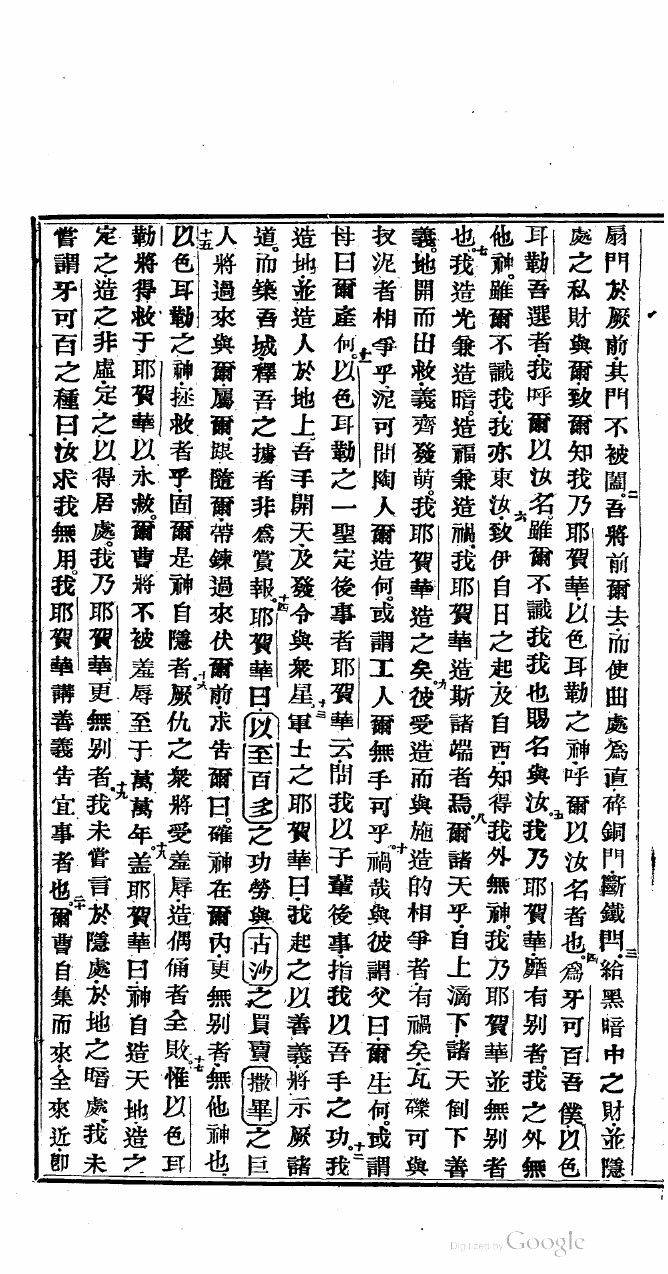 扇門於厥前其門不被闔。二吾將前爾去而使曲處為直碎銅門斷鐵門。三給黑暗中之財並隱
處之私財與爾致爾知我乃耶賀華以色耳勒之神呼爾以汝名者也。四為牙可百吾僕以色
耳勒吾選者我呼爾以汝名。雖爾不識我我也賜名與汝。五我乃耶賀華靡有別者。我之外無
他神。雖爾不識我我亦束汝。六致伊自日之起及自西知得我外無神。我乃耶賀華並無別者
也。七我造光兼造暗。造福兼造禍。我耶賀華造斯諸端者焉。八爾諸天乎自上滴下諸天倒下善
義。地開而出救義齊發萌。我耶賀華造之矣。九彼受造而與施造的相爭者有禍矣。瓦礫可與
抆泥者相爭乎泥可問陶人爾造何。或謂工人爾無手可乎。十禍哉與彼謂父曰爾生何。或謂
母曰爾產何。十一以色耳勒之一聖定後事者耶賀華云問我以子輩後事指我以吾手之功。十二我
造地並造人於地上吾手開天及發令與衆星軍士之。十三耶賀華曰我起之以善義將示厥諸
道。而築吾城釋吾之擄者非為賞報。十四耶賀華曰以至百多之功勞與古沙之買賣撒畢之巨
人將過來與爾屬爾。跟隨爾帶鍊過來伏爾前求告爾曰。確神在爾內更無別者無他神也。
十五以色耳勒之神拯救者乎固爾是神自隱者。十六厥仇之衆將受羞辱造偶俑者全敗。十七惟以色耳
勒將得救于耶賀華以永救。爾曹將不被羞辱至于萬萬年。十八蓋耶賀華曰神自造天地造之
定之造之非虛定之以得居處。我乃耶賀華更無別者。十九我未嘗言於隱處於地之暗處我未
嘗謂牙可百之種曰汝求我無用。我耶賀華講善義告宜事者也。二十爾曹自集而來全來近卽
Digitized by Google